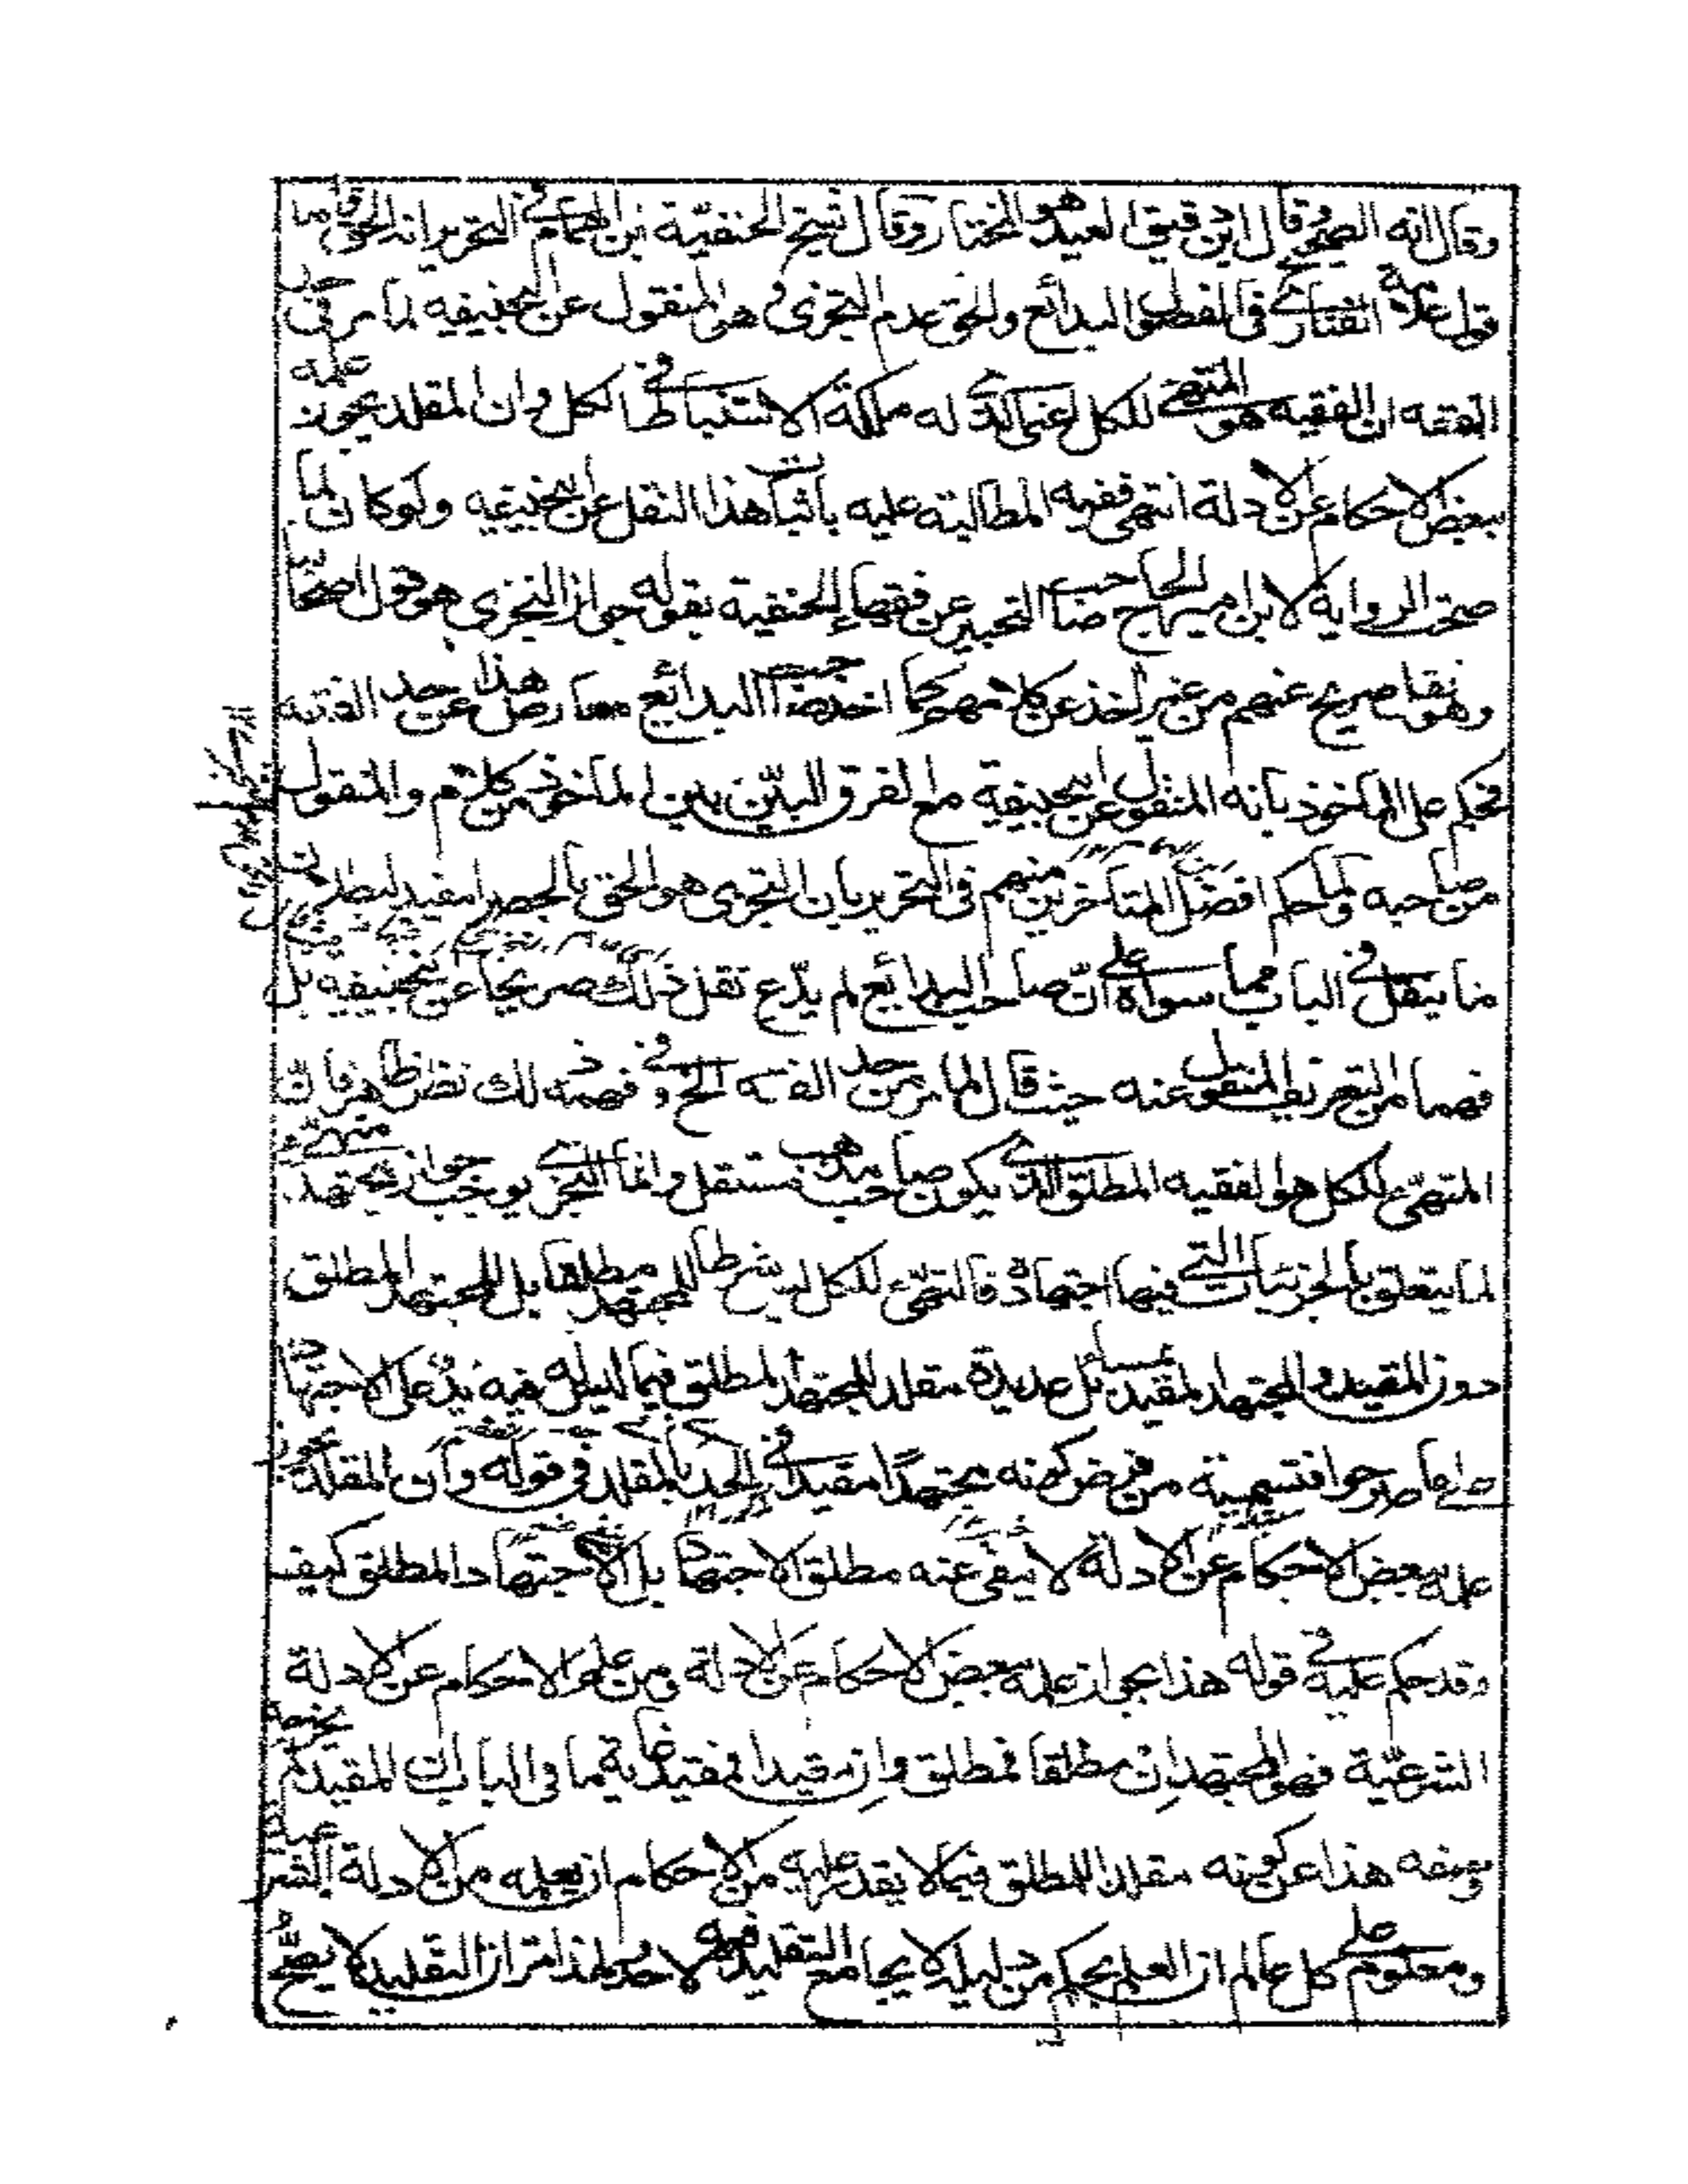 وقال انه الصحيح وقال ابن دقيق العيد هو المختار وقال شيخ الحنفية ابن الهمام في التحرير انه الحق واما
قول علامة التفتازاني في المفصل البدائع والحق عدم التجزي هو المنقول عن ابي حنيفه لما مر في حد
الفقه ان الفقيه هو المتهيئ للكل اعني الذي له ملكة الاستنباط في الكل وان المقلد يجوز علمه
ببعض الاحكام عن الادلة انتهى ففيه المطالبة عليه باثبات هذا النقل عن ابي حنيفه ولو كان لما
صحت الرواية لابن امير الحاج صاحب التحبير عن فقهاء الحنفية بقوله جواز التجزي هو قول اصحابنا
وهو نقل صريح عنهم من غير اخذ عن كلامهم كما اخذ صاحب البدائع معارض هذا عن حد الفقه
فحكم على الماخوذ بانه المنقول عن ابي حنيفة مع الفرق البيّن بين الماخوذ من كلام والمنقول
من صاحبه ولما حكم افضل المتأخرين منهم في التحرير بان التجزي هو الحق بالحصر المفيد لبطلان
ما ينقل في الباب مما سواه على انّ صاحب البدائع لم يدّع نقل ذلك صريحا عن ابي حنيفه بل
فهما من التعريف المنقول عنه حيث قال لما مر من حد الفقه الخ وفي فهمه ذلك نظر ظاهر فانّ
المتهيئ للكل هو الفقيه المطلق الذي يكون صاحب مذهب مستقل وانما التجزي يوجب جواز مجتهد متهيئ
لما يتعلق بالجزئيات التي فيها اجتهاده فالتهيئ للكل ليس شرطا للمجتهد مطلقا بل للمجتهد المطلق
دون المقيد والمجتهد المقيد بمسائل عديدة مقلد للمجتهد المطلق فيما ليس له فيه يد على الاجتهاد
على ما صرحوا فتسمية من فرض كونه مجتهدًا مقيدا في الحد بالمقلد في قوله وان المقلد يجوز
علمه ببعض الاحكام عن الادلة لا ينفي عنه مطلق الاجتهاد بل الاجتهاد المطلق كيف
وقد حكم عليه في قوله هذا بجواز علمه بعض الاحكام عن الادلة ومن علم الاحكام عن الادلة
الشرعيّة فهو المجتهد ان مطلقا فمطلق وان مقيدا فمقيد غاية ما في الباب ان المقيد لم يخرجه
وصفه هذا عن كونه مقلدا للمطلق فيما لا يقدر عليه من الاحكام ان يعلمه من الادلة
ومعلوم على كل عالم ان العلم بحكم من دليله لا يجامع التقليد فيه لاحد ولهذا مر ان التقليد لا يصح